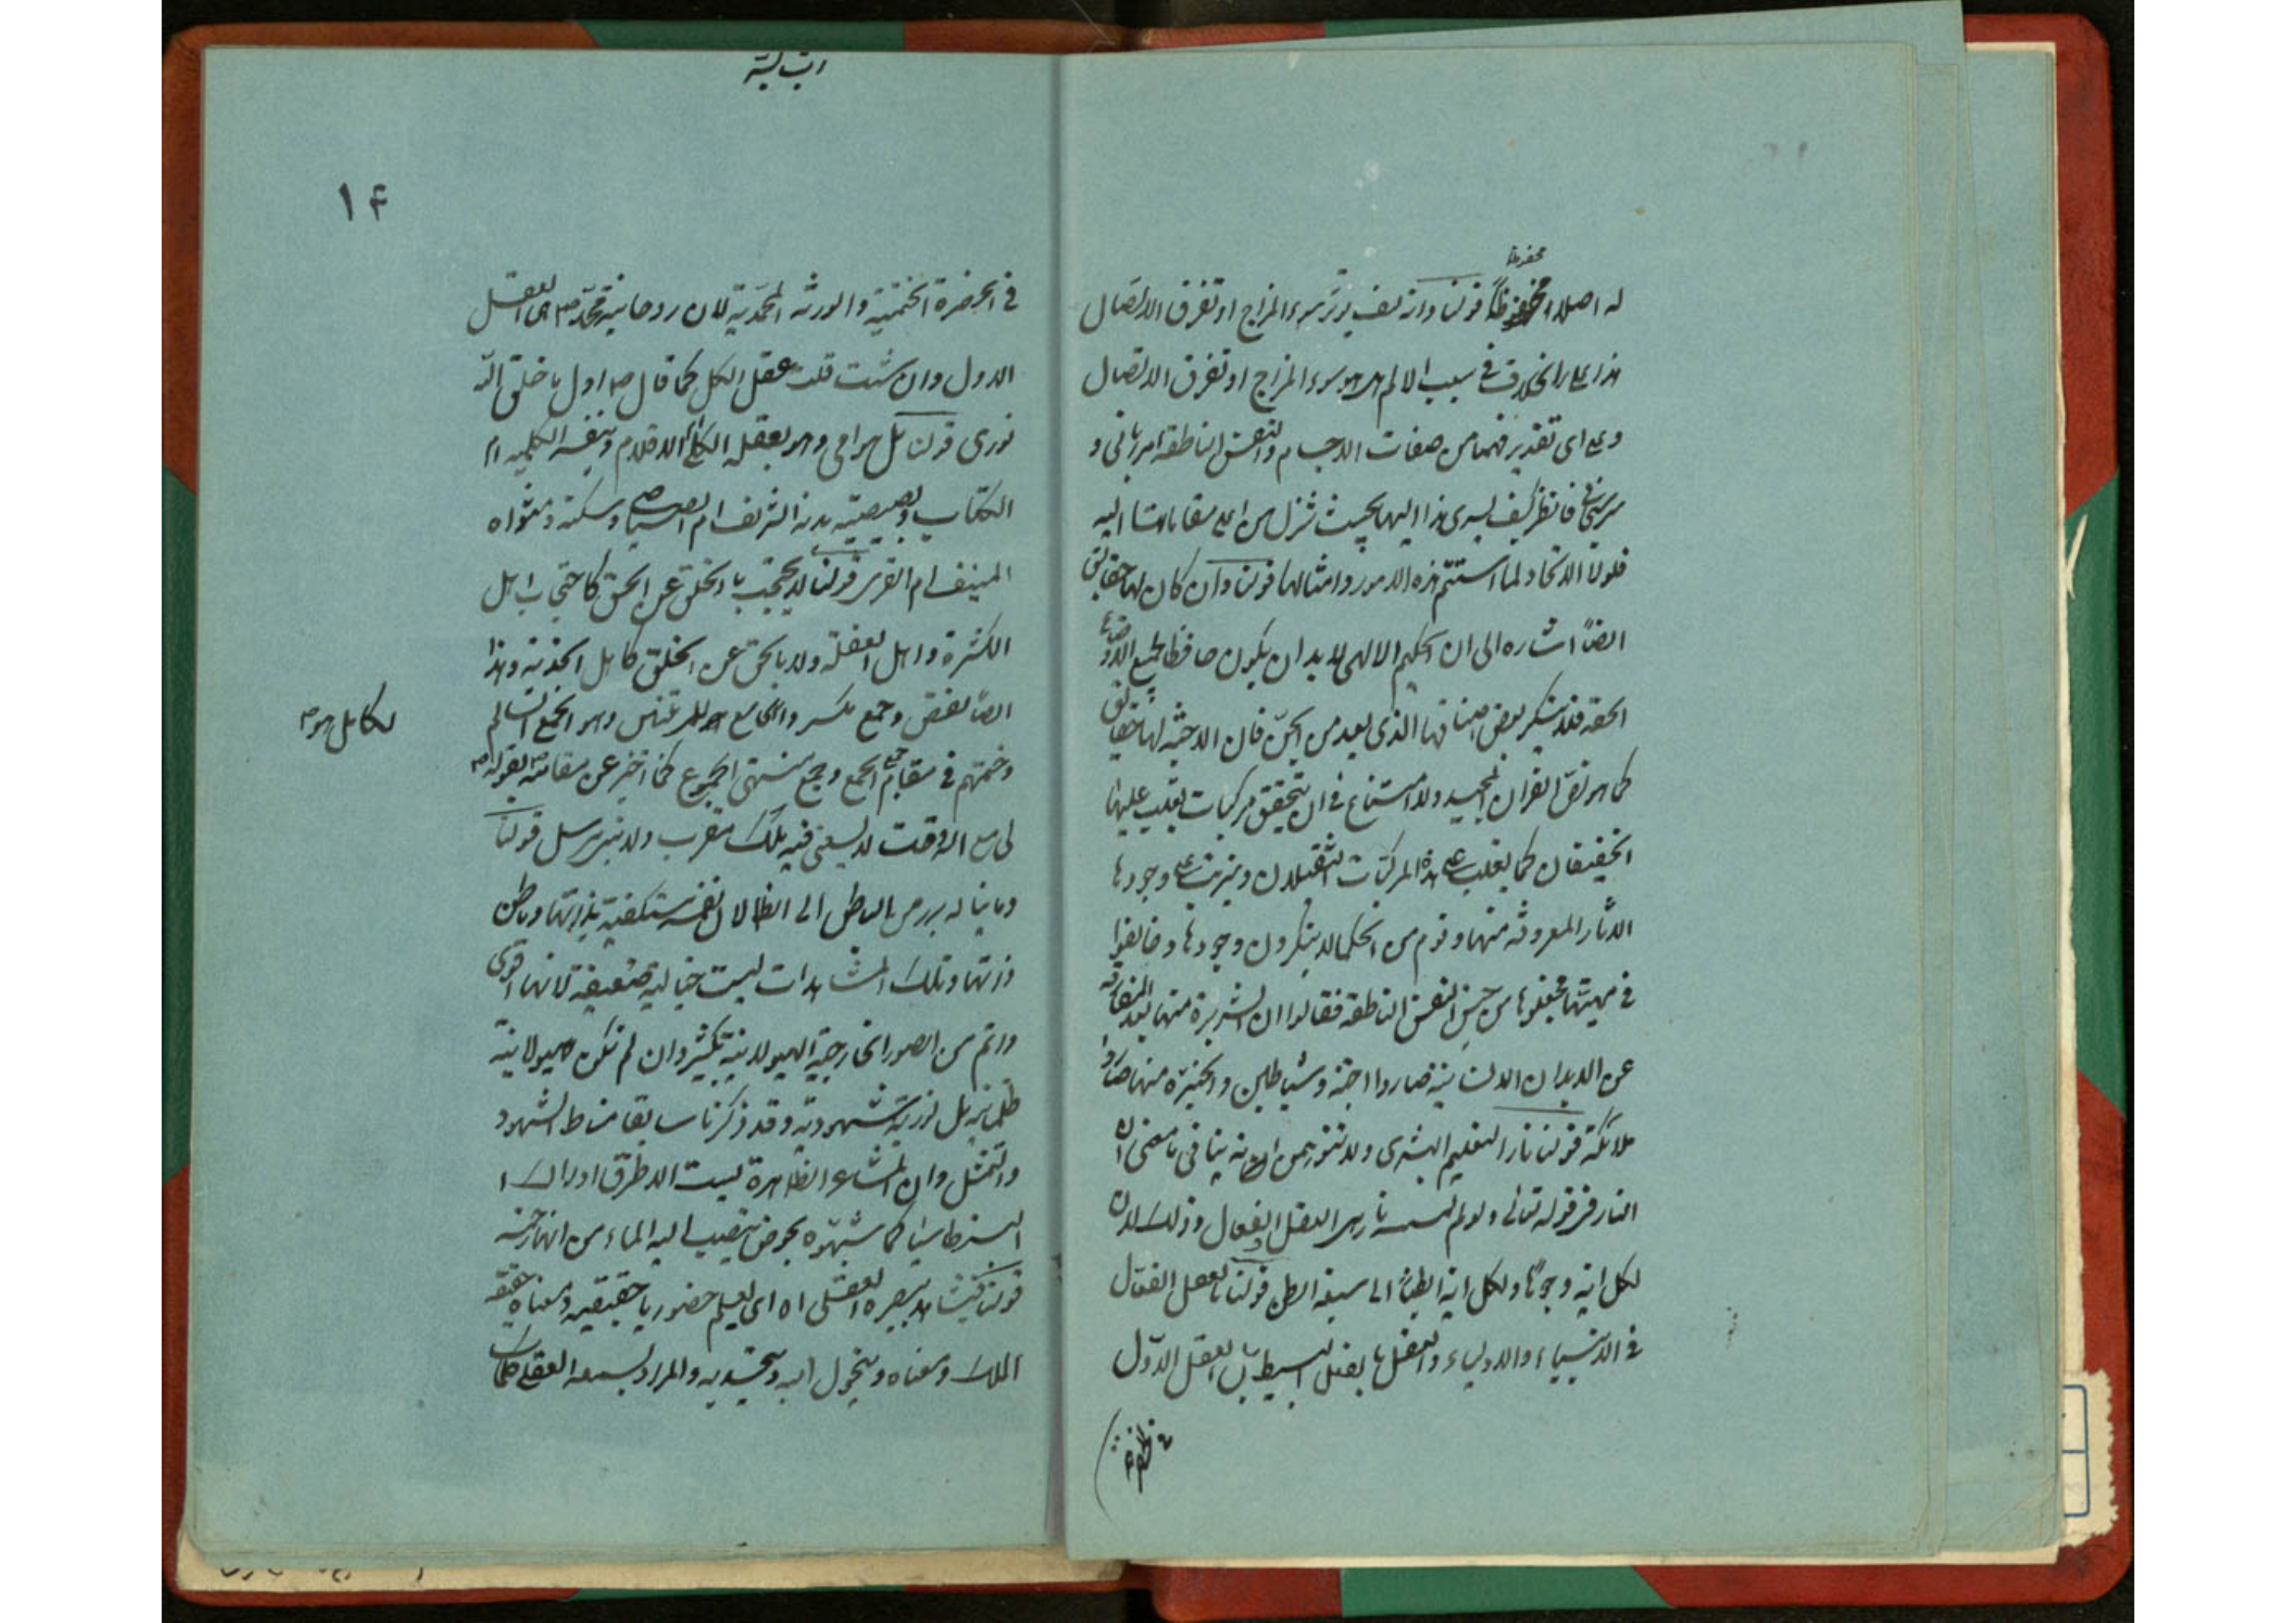 محفوظا
له اصلا محفوظاً قولنا وانه كيف يؤثر سوء المزاج او تفرق الاتصال
هذا على الخلاف في سبب الالم اهو سوء المزاج او تفرق الاتصال
وعلى اى تقدير فهما من صفات الاجسام والنفس الناطقة امر ربانى و
سر سبحانى فانظر كيف يسرى هذا اليها بحيث تنزل من اعلى مقاماتها اليه
فلولا الاتحاد لما استتم هذه الامور وامثالها قولنا وان كان لها حقايق
ايضاً اشاره الى ان الحكيم الالهى لابد ان يكون حافظا لجميع الاوضاع
الحقه فلا ينكر بعض اصنافها الذى يعد من الجن فان الاجنه لها حقايق
كما هو نص القرآن المجيد ولا امتناع في ان يتحقق مركبات يغلب عليها
الخفيفان كما يغلب على هذه المركبات الثقيلان ويترتب على وجودها
الآثار المعروفه منها وقوم من الحكما لا ينكرون وجودها وخالفوا
في مهيتها فجعلوها من جنس النفس الناطقه فقالوا ان الشريرة منها بعد المفارقه
عن الابدان الانسانيه صاروا اجنه وشياطين والخيره منها صاروا
ملائكة قولنا نار التعليم البشرى ولا تتوهمن انه ينافى ما مضى ان
النار في قوله تعالى ولو لم تمسسه نار هى العقل الفعال وذلك لان
لكل آية وجوهاً ولكل آية ابطناً الى سبعة ابطن قولنا بالعقل الفعال
في الانبياء والاولياء والعقل بالفعل البسيط بل العقل الاول
في الحضرة الختمية والورثه المحمدية لان روحانية محمد ص هى العقل
الاول وان شئت قلت عقل الكل كما قال ص اول ما خلق الله
نورى قولنا بل هو امى وهو بعقله الكلى ام الاقلام وبنفسه الكليه ام
الكتاب
المنيف ام القرى قولنا لا يحتجب بالخلق عن الحق كاحتجاب اهل
الكثرة واهل الغفلة ولا بالحق عن الخلق كاهل الجذبة وهذا
ايضاً نقص وجمع مكسر والجامع للمرتبتين وهو الجمع السالم
لكامل هو ص
وختمهم في مقام جمع الجمع وجمع منتهى الجموع كما اخبر عن مقامه بقوله ص
لى مع الله وقت لا يسعنى فيه ملك مقرب ولا نبى مرسل قولنا
وما يناله يبرز من الباطن الى الظاهر لان نفسه مستكفية بذاتها وباطن
ذاتها وتلك المشاهدات ليست خيالية ضعيفة لانها اقوى
واتم من الصور الخارجية الهيولانية بكثير وان لم تكن هيولانية
ظلمانية بل نورية شهودية وقد ذكرنا سابقا مناط الشهود
والتمثل وان المشاعر الظاهرة ليست الا طرق ادراك
البنطاسيا كما شبهوه بحوض ينصب اليه الماء من انهار خمسه
قولنا فيشاهد ببصره العقلى اه اى يعلم حضوريا حقيقيه ومعناه حقيقة
الملك ومعناه ويتحول اليه ويتحد به والمراد بسمعه العقلى